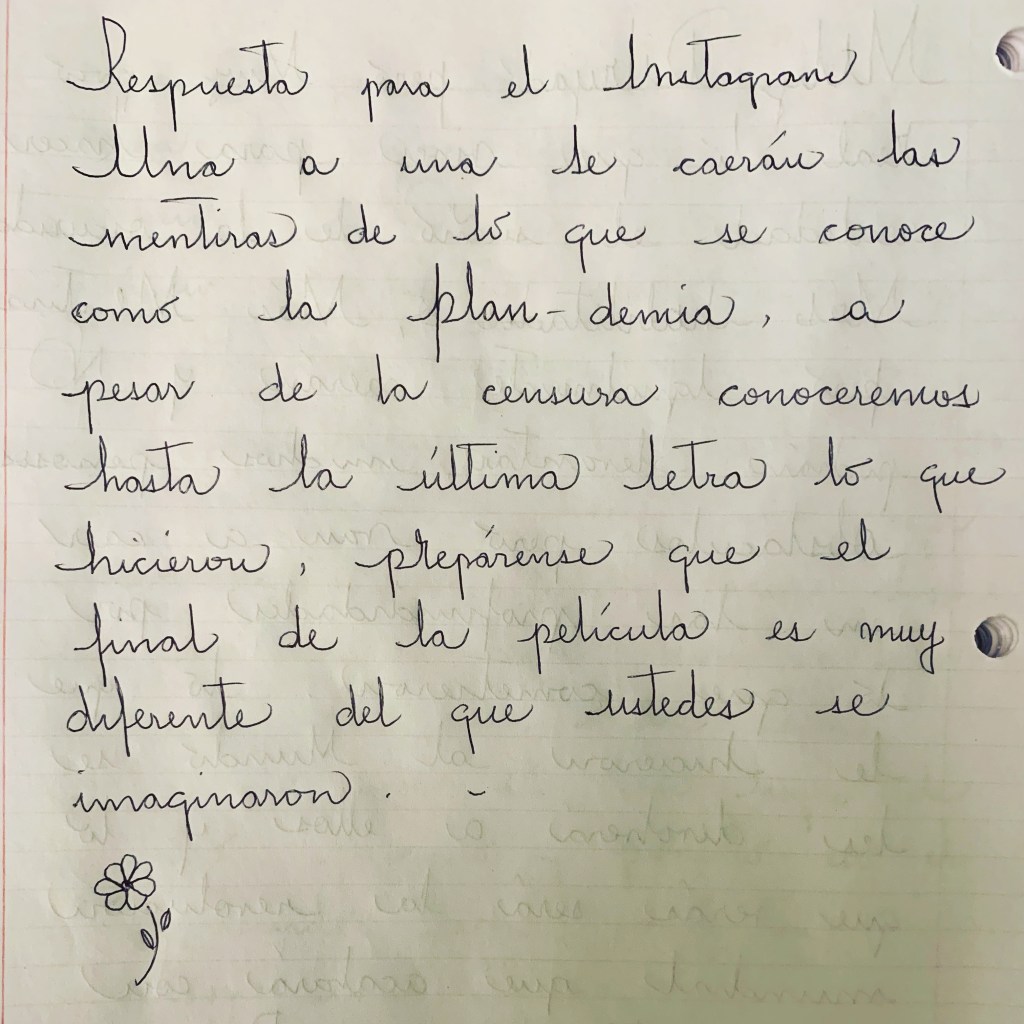 Respuesta para el Instagram
Una a una se caerán las
mentiras de lo que se conoce
como la plan-demia, a
pesar de la censura conoceremos
hasta la última letra lo que
hicieron, prepárense que el
final de la película es muy
diferente del que ustedes se
imaginaron. -